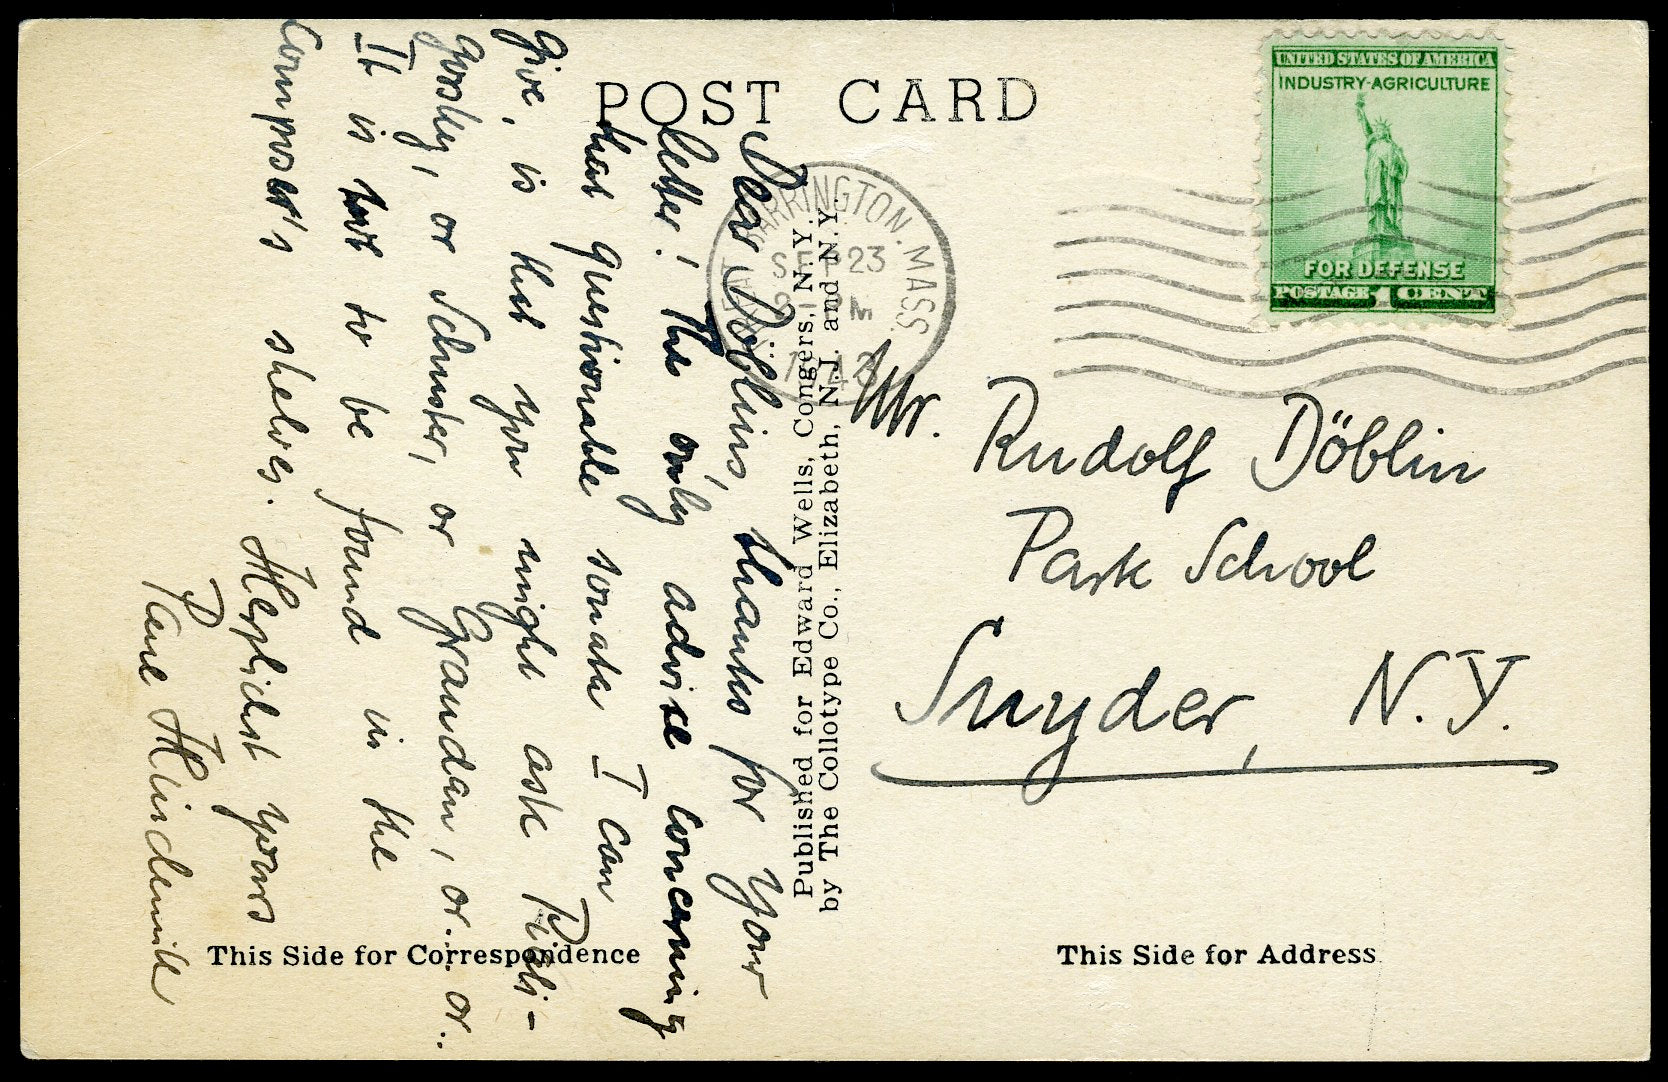 POST CARD
UNITED STATES OF AMERICA
INDUSTRY-AGRICULTURE
FOR DEFENSE
POSTAGE 1 CENT
GREAT BARRINGTON. MASS.
SEP 23
PM
1943
Dear Döblins, thanks for your
letter! The only advise concerning
that questionable sonata I can
give, is that you might ask Piati-
gorsky, or Schuster, or Graudan, or.. or..
It is not to be found in the
Composer's shelves. Herzlichst yours
Paul Hindemith
Published for Edward Wells, Congers, N.Y.
by The Collotype Co., Elizabeth, N.J. and N.Y.
Mr. Rudolf Döblin
Park School
Snyder, N.Y.
This Side for Correspondence
This Side for Address